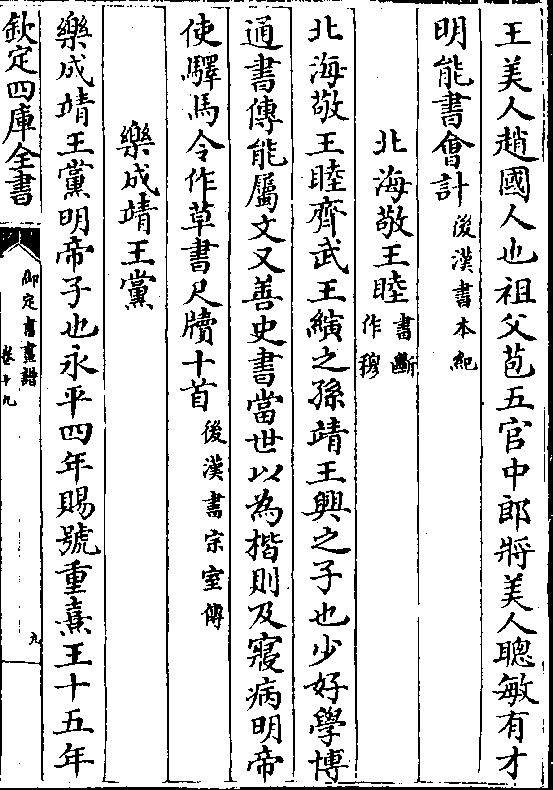 王美人趙國人也祖父苞五官中郎將美人聰敏有才
明能書會計後漢書本紀
北海敬王睦書斷作穆
北海敬王睦齊武王縯之孫靖王興之子也少好學博
通書傳能屬文又善史書當世以為楷則及寢病明帝
使驛馬令作草書尺牘十首後漢書宗室傳
樂成靖王黨
樂成靖王黨明帝子也永平四年賜號重熹王十五年
欽定四庫全書
御定書畫譜
卷十九
九